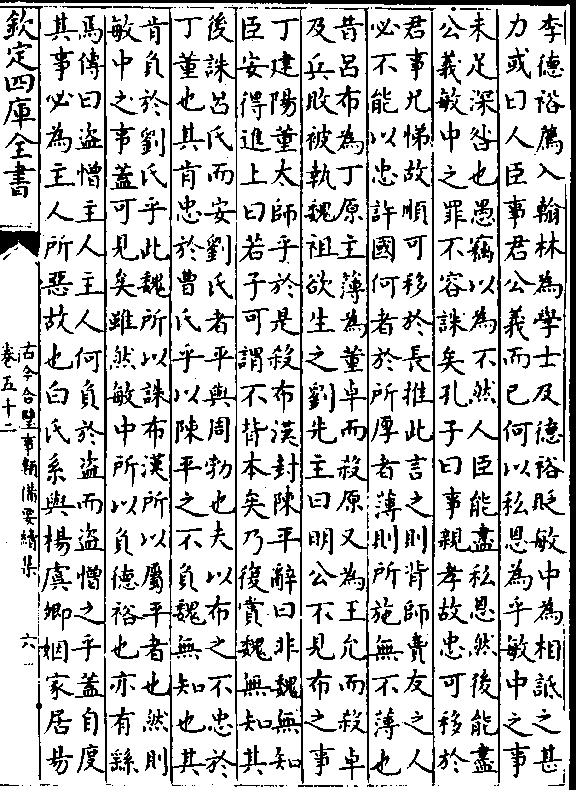 李德裕薦入翰林為學士及德裕貶敏中為相詆之甚
力或曰人臣事君公義而已何以私恩為乎敏中之事
未足深咎也愚竊以為不然人臣能盡私恩然後能盡
公義敏中之罪不容誅矣孔子曰事親孝故忠可移於
君事兄悌故順可移於長推此言之則背師賣友之人
必不能以忠許國何者於所厚者薄則所施無不薄也
昔呂布為丁原主簿為董卓而殺原又為王允而殺卓
及兵敗被執魏祖欲生之劉先主曰明公不見布之事
丁建陽董太師乎於是殺布漢封陳平辭曰非魏無知
臣安得進上曰若子可謂不背本矣乃復賞魏無知其
後誅呂氏而安劉氏者平與周勃也夫以布之不忠於
丁董也其肯忠於曹氏乎以陳平之不負魏無知也其
肯負於劉氏乎此魏所以誅布漢所以屬平者也然則
敏中之事蓋可見矣雖然敏中所以負德裕也亦有繇
焉傳曰盜憎主人主人何負於盜而盜憎之乎蓋自度
其事必為主人所惡故也白氏系與楊虞卿姻家居易
欽定四庫全書
古今合璧事類備要續集
卷五十二
六